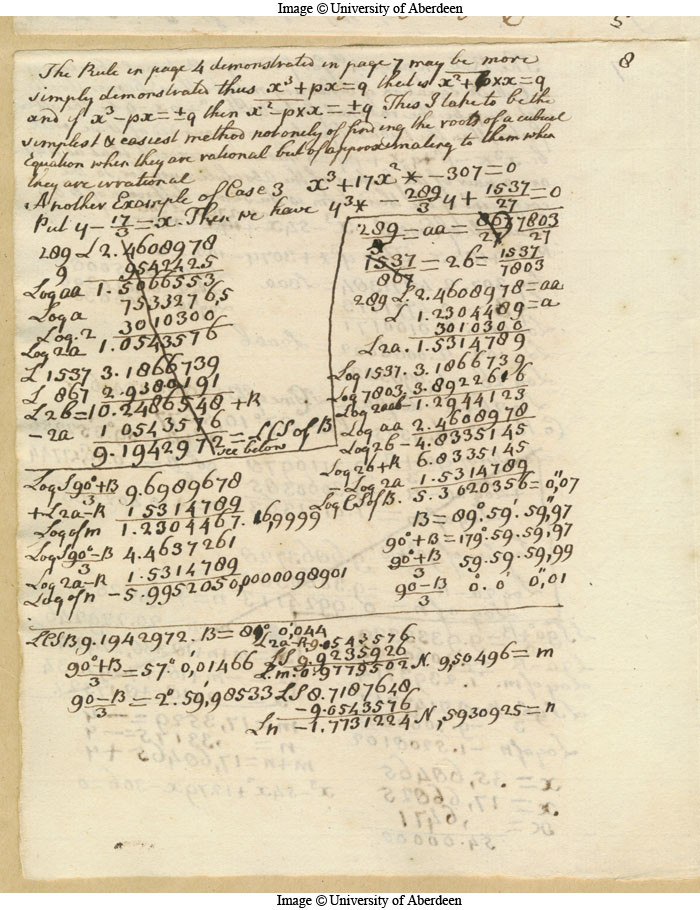 Image © University of Aberdeen
8
The Rule in page 4 demonstrated in page 7 may be more
simply demonstrated thus x³+px=q that is x²+p×x=q
and if x³-px=±q then x²-p×x=±q This I take to be the
simplest & easiest method not only of finding the roots of a cubical
Equation when they are rational but of approximating to them when
they are irrational
Another Example of Case 3 x³+17x²*-307=0
Put y-17/3=x. Then we have y³*-289/3 y+1537/27=0
289 L 2.4608978
9 .9542425
Log aa 1.5066553
Log a 7533276,5
Log. 2 3010300
Log 2a 1.0543576
L 1537 3.1866739
L 867 2.9380191
L 2b=10.2486548+R
-2a 1 0543576
9.1942972=LCS of B
see below
289 = aa = 7803/27
1537/867 = 2b = 1537/7803
289 L 2.4608978=aa
L 1.2304489=a
3010300
L2a. 1.5314789
Log 1537. 3.1866739
Log 7803. 3.8922616
Log 2aab -1.2944123
Log aa 2.4608978
Log 2b -4.8335145
Log 2b+R 6.8335145
-Log 2a 1.5314789
Log CS of B. 5.3020356=0,"07
B=89°.59'.59",97
90°+B=179°.59.59,97
90°+B/3 59.59.59,99
90-B/3 0°.0' 0",01
Log S 90°+B/3 9.6989678
+L2a-R 1.5314789
Log of m 1.2304467. 16,9999
Log S 90°-B/3 4.4637261
Log 2a-R 1.5314789
Log of n -5.9952050,0000098901
LCSB 9.1942972. B=81° 0',044
90°+B/3=57° 0',01466
L2a-R 9.0543576
LS 9.9235926
L.m. 0.9779502 N. 9,50496=m
90-B/3=2°.59',98533 LS 8.7187648
-9.0543576
Ln -1.7731224 N,5930925=n
Image © University of Aberdeen